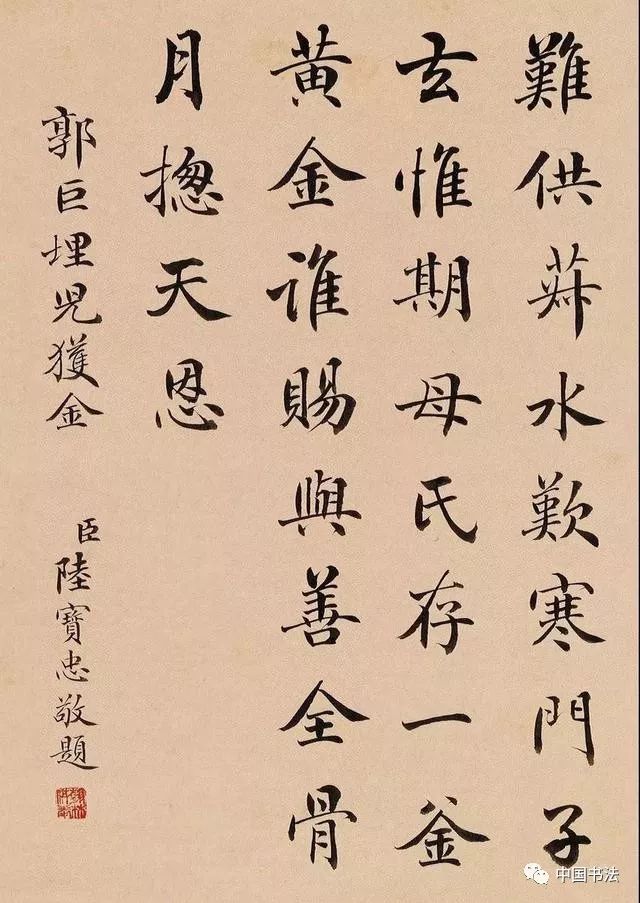 難供菽水歎寒門子
去惟期母氏存一釜
黃金誰賜與善全骨
月摠天恩
郭巨埋兒獲金
臣陸寶忠敬題
中国书法